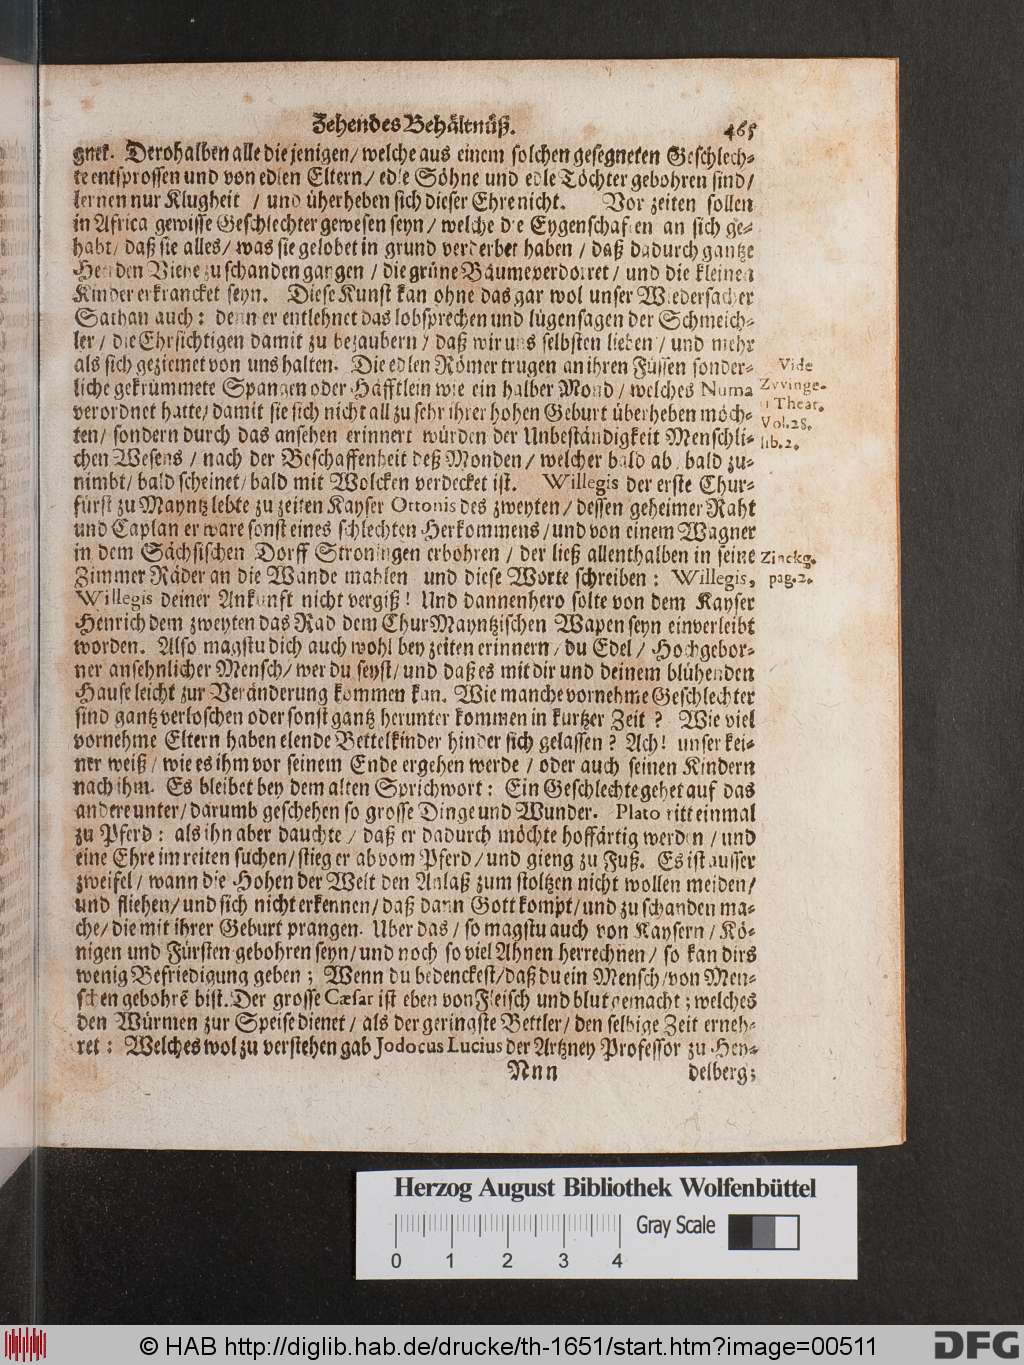 Zehendes Behältnüß. 465
gnet. Derohalben alle die jenigen/ welche aus einem solchen gesegneten Geschlech-
te entsprossen und von edlen Eltern/ edle Söhne und edle Töchter gebohren sind/
lernen nur Klugheit / und überheben sich dieser Ehre nicht. Vor zeiten sollen
in Africa gewisse Geschlechter gewesen seyn/ welche die Eygenschaften an sich ge-
habt/ daß sie alles/ was sie gelobet in grund verderbet haben / daß dadurch gantze
Herden Viehe zu schanden gangen / die grüne Bäume verdorret / und die kleinen
Kinder erkrancket seyn. Diese Kunst kan ohne das gar wol unser Wiedersacher
Sathan auch: denn er entlehnet das lobsprechen und lügensagen der Schmeich-
ler / die Ehrsichtigen damit zu bezaubern / daß wir uns selbsten lieben / und mehr
als sich geziemet von uns halten. Die edlen Römer trugen an ihren Füssen sonder-
liche gekrümmete Spangen oder Häfftlein wie ein halber Mond / welches Numa
verordnet hatte/ damit sie sich nicht all zu sehr ihrer hohen Geburt überheben möch-
ten/ sondern durch das ansehen erinnert würden der Unbeständigkeit Menschli-
chen Wesens / nach der Beschaffenheit deß Monden / welcher bald ab, bald zu-
nimbt/ bald scheinet/ bald mit Wolcken verdecket ist. Willegis der erste Chur-
fürst zu Mayntz lebte zu zeiten Kayser Ottonis des zweyten / dessen geheimer Raht
und Caplan er ware sonst eines schlechten Herkommens/ und von einem Wagner
in dem Sächsischen Dorff Stroningen erbohren / der ließ allenthalben in seine
Zimmer Räder an die Wände mahlen und diese Worte schreiben: Willegis,
Willegis deiner Ankunft nicht vergiß! Und dannenhero solte von dem Kayser
Henrich dem zweyten das Rad dem ChurMayntzischen Wapen seyn einverleibt
worden. Also magstu dich auch wohl bey zeiten erinnern / du Edel / Hochgebor-
ner ansehnlicher Mensch/ wer du seyst/ und daß es mit dir und deinem blühenden
Hause leicht zur Veränderung kommen kan. Wie manche vornehme Geschlechter
sind gantz verloschen oder sonst gantz herunter kommen in kurtzer Zeit ? Wie viel
vornehme Eltern haben elende Bettelkinder hinder sich gelassen ? Ach! unser kei-
ner weiß / wie es ihm vor seinem Ende ergehen werde / oder auch seinen Kindern
nach ihm. Es bleibet bey dem alten Sprichwort: Ein Geschlechte gehet auf das
andere unter/ darumb geschehen so grosse Dinge und Wunder. Plato ritt einmal
zu Pferd: als ihn aber dauchte / daß er dadurch möchte hoffärtig werden / und
eine Ehre im reiten suchen/ stieg er ab vom Pferd / und gieng zu Fuß. Es ist ausser
zweifel / wann die Hohen der Welt den Anlaß zum stoltzen nicht wollen meiden/
und fliehen/ und sich nicht erkennen/ daß dann Gott kompt/ und zu schanden ma-
che/ die mit ihrer Geburt prangen. Uber das / so magstu auch von Kaysern / Kö-
nigen und Fürsten gebohren seyn/ und noch so viel Ahnen herrechnen / so kan dirs
wenig Befriedigung geben ; Wenn du bedenckest/ daß du ein Mensch/ von Men-
schen gebohrẽ bist. Der grosse Cæsar ist eben von Fleisch und blut gemacht ; welches
den Würmen zur Speise dienet / als der geringste Bettler/ den selbige Zeit erneh-
ret: Welches wol zu verstehen gab Jodocus Lucius der Artzney Professor zu Hey-
Nnn delberg;
Vide
Zvvinge-
ri Theat.
Vol. 28.
lib. 2.
Zinckg.
pag. 2.
Herzog August Bibliothek Wolfenbüttel
Gray Scale
0 1 2 3 4
© HAB http://diglib.hab.de/drucke/th-1651/start.htm?image=00511
DFG